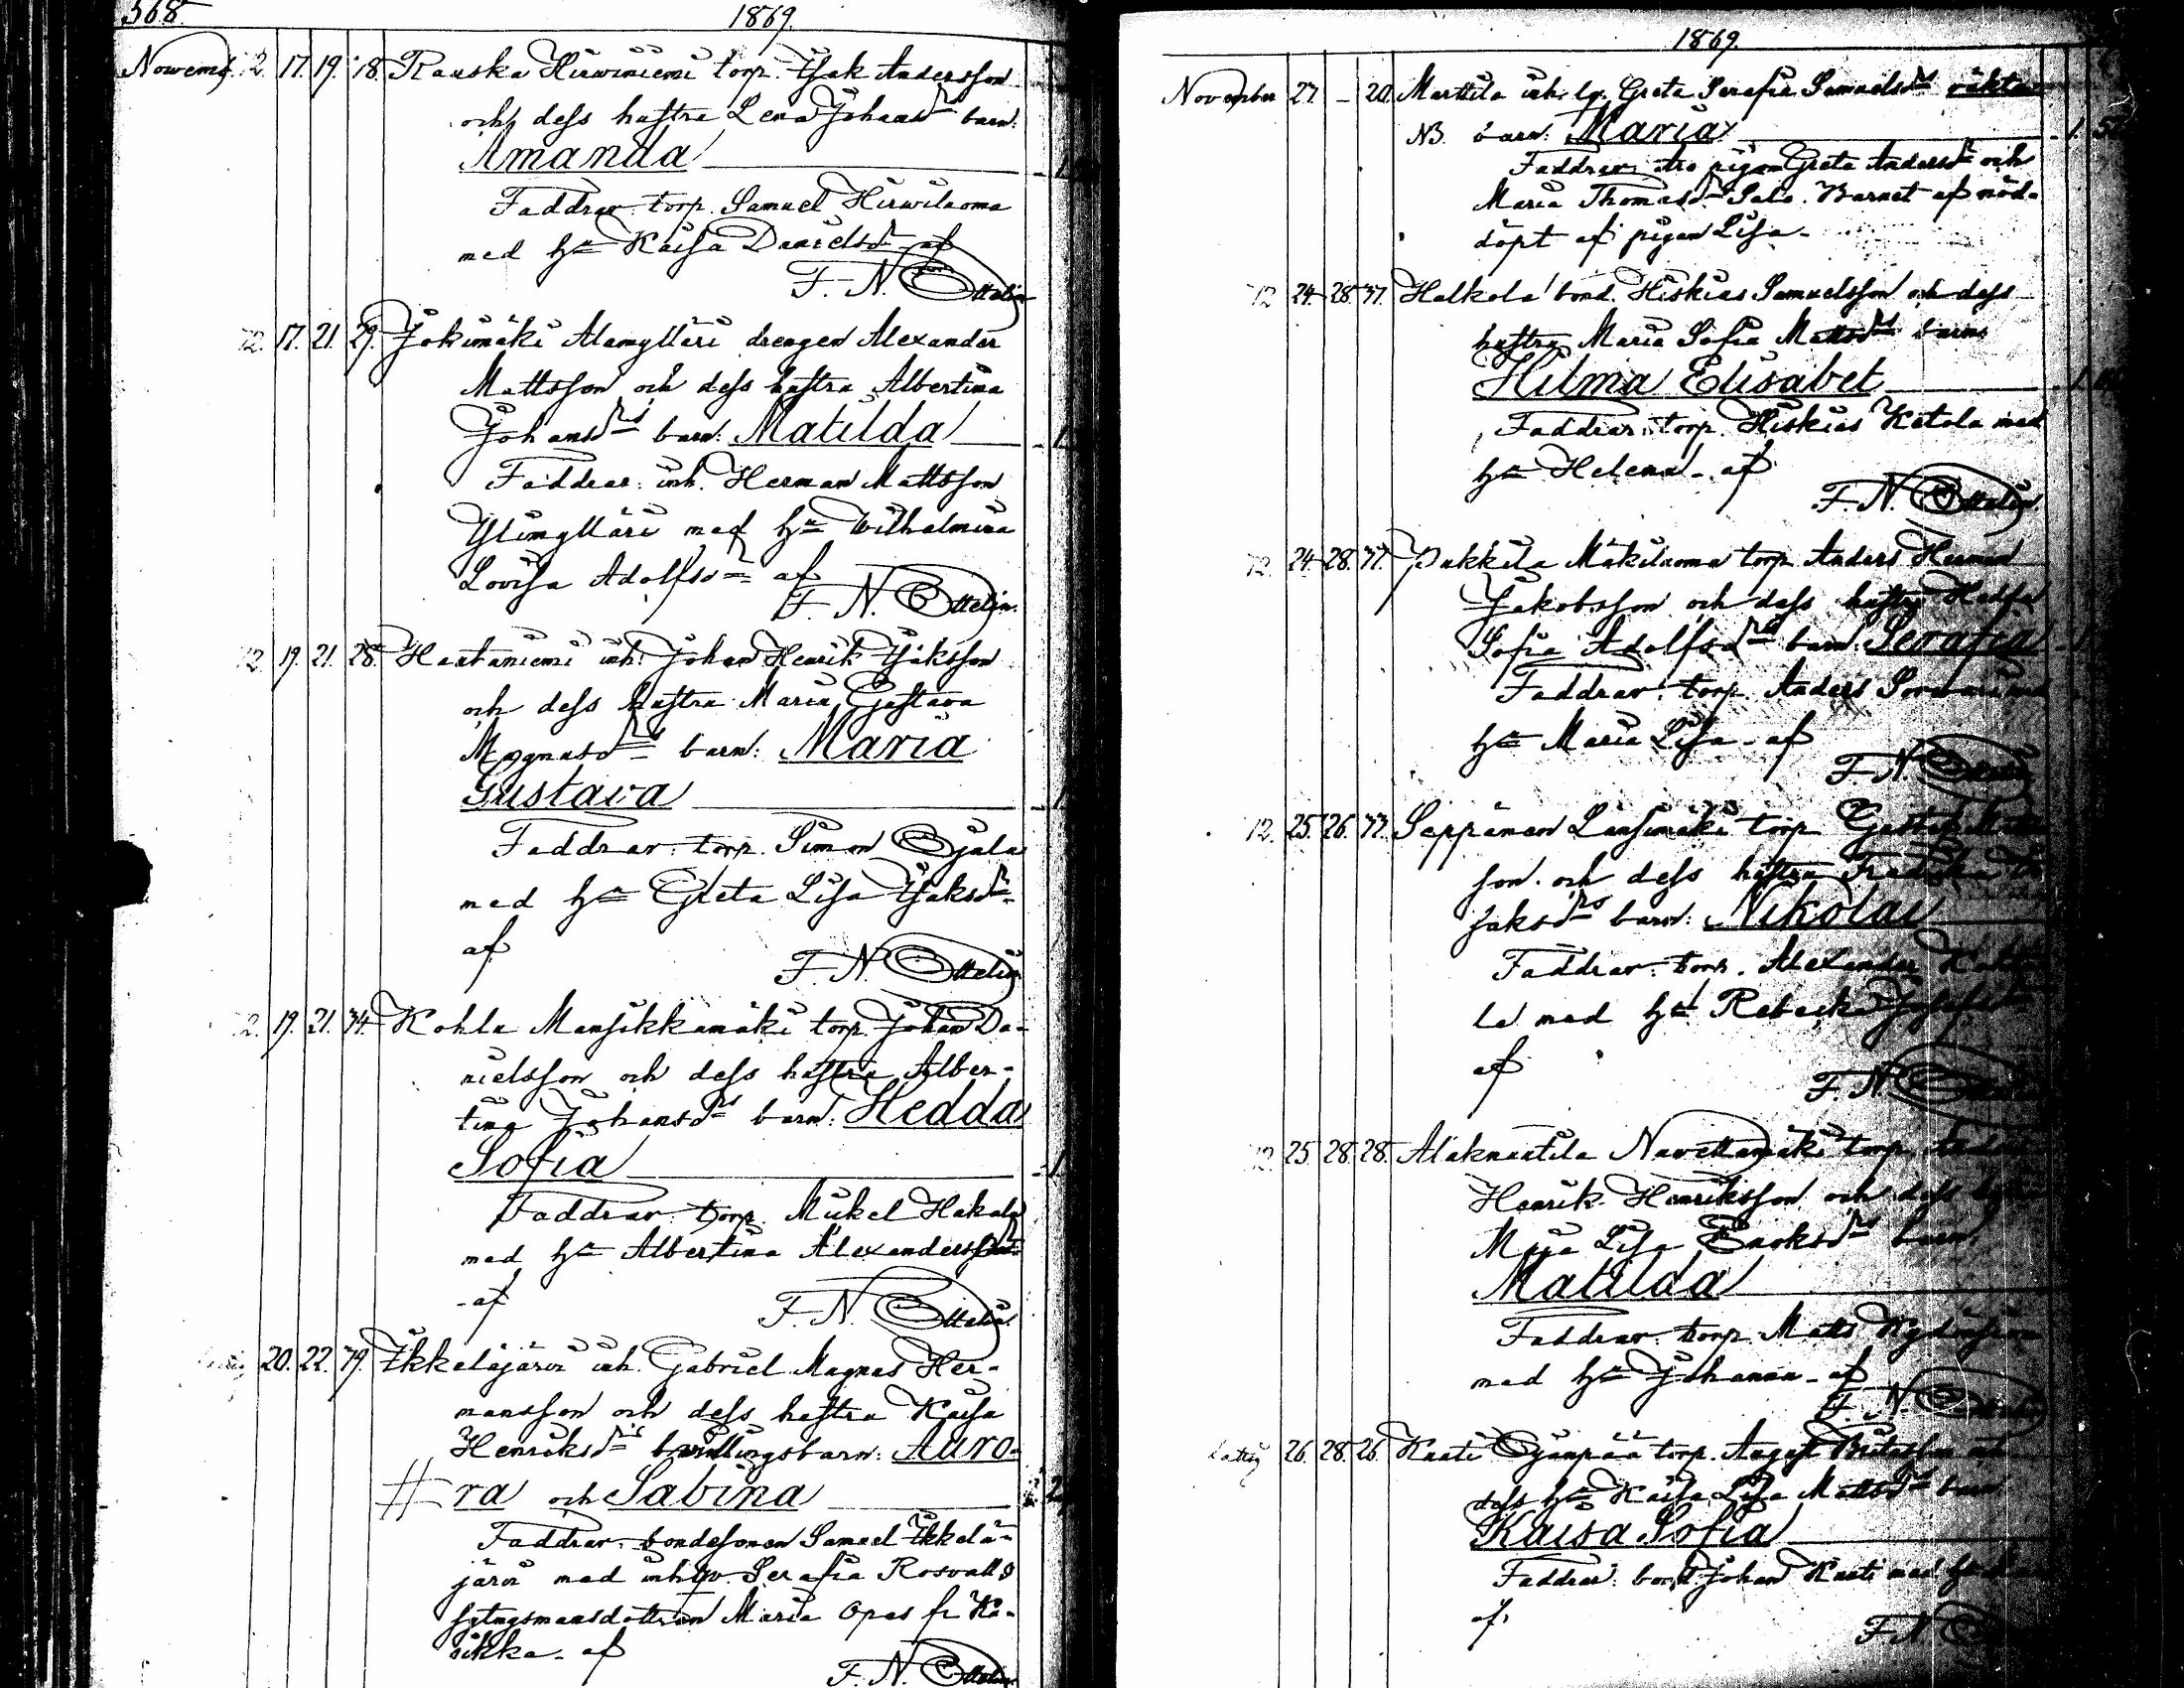 568. 1869.
Novemb. 12. 17. 19. 18. Rauska Hirviniemi torp. Isak Andersson
och dess hustru Lena Johansdr barn:
Amanda
Faddrar: torp. Samuel Hirvilaoma
med hu Kaisa Danielsdr af
F. N. Ottelin
12. 17. 21. 29. Jokimäki Alamylläri drengen Alexander
Mattsson och dess hustru Albertina
Johansdrs barn: Matilda
Faddrar: inh. Herman Mattsson
Ylimylläri med hu Wilhelmina
Lovisa Adolfsdr af
F. N. Ottelin.
12. 19. 21. 28. Haataniemi inh. Johan Henrik Isaksson
och dess hustru Maria Gustava
Magnusdrs barn: Maria
Gustava
Faddrar: torp. Simon Ojala
med hu Greta Lisa Isaksdr
af
F. N. Ottelin
12. 19. 21. 34. Kohla Mansikkamäki torp. Johan Da-
nielsson och dess hustru Alber-
tina Johansdrs barn: Hedda
Sofia
Faddrar: torp. Mikel Hakala
med hu Albertina Alexandersdr
- af
F. N. Ottelin.
20. 22. 79. Ikkeläjärvi inh. Gabriel Magnus Her-
mansson och dess hustru Kaisa
Henriksdrs tvillingsbarn: Auro-
# ra och Sabina
Faddrar: bondesonen Samuel Ikkelä-
järvi med inh. Serafia Rosvall
sytngsmansdottren Maria Opas fr. Ka-
sikka - af
F. N. Ottelin
1869.
November 27 - 20. Marttila inh. lg. Greta Serafia Samuelsdrs oäkta
NB. barn: Maria 1. 50
Faddrar: pigan Greta Andersdr och
Maria Thomasdr Salo. Barnet af nöd-
döpt af pigan Lisa -
12 24 28. 37. Halkola bond. Hiskias Samuelsson och dess
hustru Maria Sofia Mattsdrs barn
Hilma Elisabet
Faddrar: torp. Hiskias Ketola med
hu Helena - af
F. N. Ottelin.
12. 24 28. 37. Pukkila Mäkilaoma torp. Anders Herman
Jakobsson och dess hustru Hedda
Sofia Adolfsdrs barn: Serafia
Faddrar: torp. Anders
hu Maria Lisa - af
F. N. Ottelin
12. 25. 26. 37. Seppämen Länsimäki torp. Gustaf
son och dess hustru Fredrika
saksdrs barn: Nikolai
Faddrar: torp. Alexander
la med hu Rebecka
af
F. N. Ottelin
12. 25 28. 28. Alaknuutila Navettamäki torp.
Henrik Henriksson och dess
Maja Lisa Enoksdrs barn
Matilda
Faddrar: torp. Matts
med hu Johanna - af
F. N. Ottelin
26. 28. 26. Knuti Ojanpää torp. August och
dess hu Kaisa Lisa Mattsdrs barn
Kaisa Sofia
Faddrar: bond. Johan Knuti med hu
af
F. N.